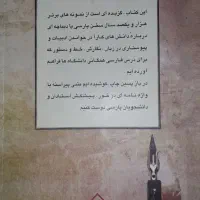 این کتاب، گزیده ای است از نمونه های برتر
هزار و یکصد سال سخن پارسی با دیباچه ای
درباره دانش های کارا در خواندن ادبیات و
پیوستاری در زبان، نگارش، خط و دستور که
برای درس فارسی همگانی دانشگاه ها فراهم
آورده ایم
در باز پسین چاپ، کوشیده ایم متنی پیراسته با
واژه نامه ای در خور، پیشکش استادان و
دانشجویان پارسی دوست کنیم